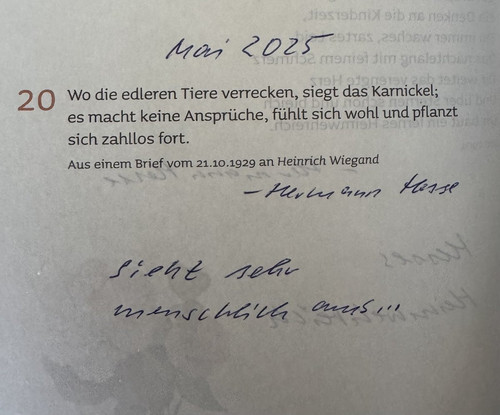 Mai 2025
20 Wo die edleren Tiere verrecken, siegt das Karnickel;
es macht keine Ansprüche, fühlt sich wohl und pflanzt
sich zahllos fort.
Aus einem Brief vom 21.10.1929 an Heinrich Wiegand
– Hermann Hesse
sieht sehr
menschlich aus...